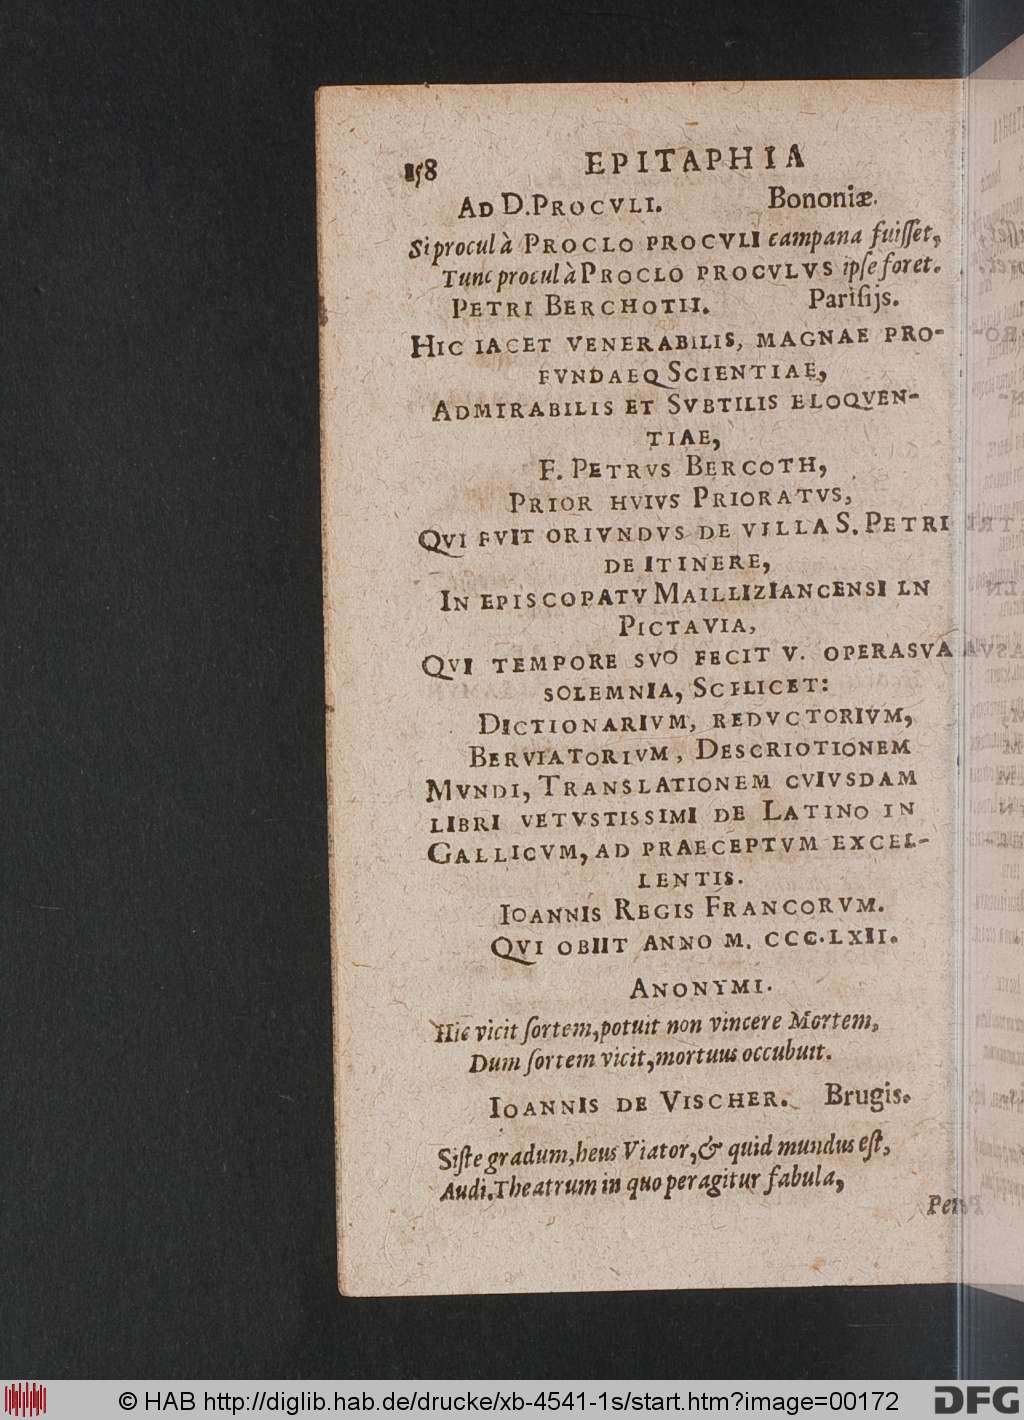 158 EPITAPHIA
AD D. PROCVLI. Bononiæ.
Si procul à PROCLO PROCVLI campana fuiſſet,
Tunc procul à PROCLO PROCVLVS ipſe foret.
PETRI BERCHOTII. Pariſijs.
HIC IACET VENERABILIS, MAGNAE PRO-
FVNDAEQ SCIENTIAE,
ADMIRABILIS ET SVBTILIS ELOQVEN-
TIAE,
F. PETRVS BERCOTH,
PRIOR HVIVS PRIORATVS,
QVI FVIT ORIVNDVS DE VILLA S. PETRI
DE ITINERE,
IN EPISCOPATV MAILLIZIANCENSI LN
PICTAVIA,
QVI TEMPORE SVO FECIT V. OPERA SVA
SOLEMNIA, SCILICET:
DICTIONARIVM, REDVCTORIVM,
BERVIATORIVM, DESCRIOTIONEM
MVNDI, TRANSLATIONEM CVIVSDAM
LIBRI VETVSTISSIMI DE LATINO IN
GALLICVM, AD PRAECEPTVM EXCEL-
LENTIS.
IOANNIS REGIS FRANCORVM.
QVI OBIIT ANNO M. CCC.LXII.
ANONYMI.
Hic vicit ſortem, potuit non vincere Mortem,
Dum ſortem vicit, mortuus occubuit.
IOANNIS DE VISCHER. Brugis.
Siſte gradum, heus Viator, & quid mundus eſt,
Audi. Theatrum in quo peragitur fabula,
© HAB http://diglib.hab.de/drucke/xb-4541-1s/start.htm?image=00172 DFG